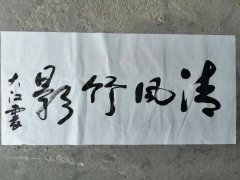 清风竹影
大江书